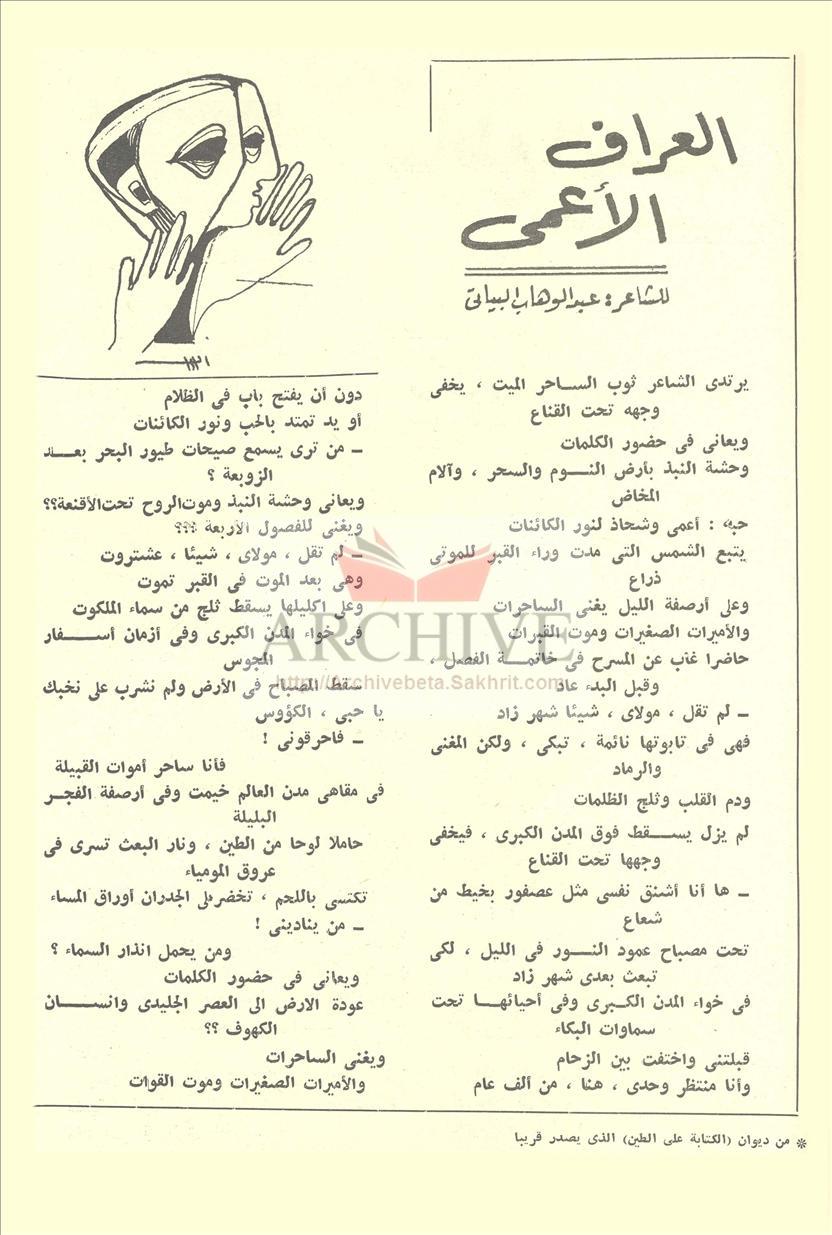 العراف
الأعمى
للشاعر : عبد الوهاب البياتى
يرتدى الشاعر ثوب الساحر الميت ، يخفى
وجهه تحت القناع
ويعانى فى حضور الكلمات
وحشة النبذ بأرض النوم والسحر ، وآلام
المخاض
حبه : أعمى وشحاذ لنور الكائنات
يتبع الشمس التى مدت وراء القبر للموتى
ذراع
وعلى أرصفة الليل يغنى الساحرات
والأميرات الصغيرات وموت القبرات
حاضرا غاب عن المسرح فى خاتمة الفصل ،
وقبل البدء عاد
ـ لم تقل ، مولاى ، شيئا شهر زاد
فهى فى تابوتها نائمة ، تبكى ، ولكن المغنى
والرماد
ودم القلب وثلج الظلمات
لم يزل يسقط فوق المدن الكبرى ، فيخفى
وجهها تحت القناع
ـ ها أنا أشنق نفسى مثل عصفور بخيط من
شعاع
تحت مصباح عمود النور فى الليل ، لكى
تبعث بعدى شهر زاد
فى خواء المدن الكبرى وفى أحيائها تحت
سماوات البكاء
قبلتنى واختفت بين الزحام
وأنا منتظر وحدى ، هنا ، من ألف عام
دون أن يفتح باب فى الظلام
أو يد تمتد بالحب ونور الكائنات
ـ من ترى يسمع صيحات طيور البحر بعد
الزوبعة ؟
ويعانى وحشة النبذ وموت الروح تحت الأقنعة؟؟
ويغنى للفصول الأربعة ؟؟؟
ـ لم تقل ، مولاى ، شيئا ، عشتروت
وهى بعد الموت فى القبر تموت
وعلى اكليلها يسقط ثلج من سماء الملكوت
فى خواء المدن الكبرى وفى أزمان أسفار
المجوس
سقط المصباح فى الأرض ولم نشرب على نخبك
يا حبى ، الكؤوس
ـ فاحرقونى !
فأنا ساحر أموات القبيلة
فى مقاهى مدن العالم خيمت وفى أرصفة الفجر
البليلة
حاملا لوحا من الطين ، ونار البعث تسرى فى
عروق المومياء
تكتسى باللحم ، تخضر على الجدران أوراق المساء
ـ من ينادينى !
ومن يحمل انذار السماء ؟
ويعانى فى حضور الكلمات
عودة الارض الى العصر الجليدى وانسان
الكهوف ؟؟
ويغنى الساحرات
والأميرات الصغيرات وموت القوات
* من ديوان (الكتابة على الطين) الذى يصدر قريبا
ARCHIVE
http://Archivebeta.Sakhrit.com